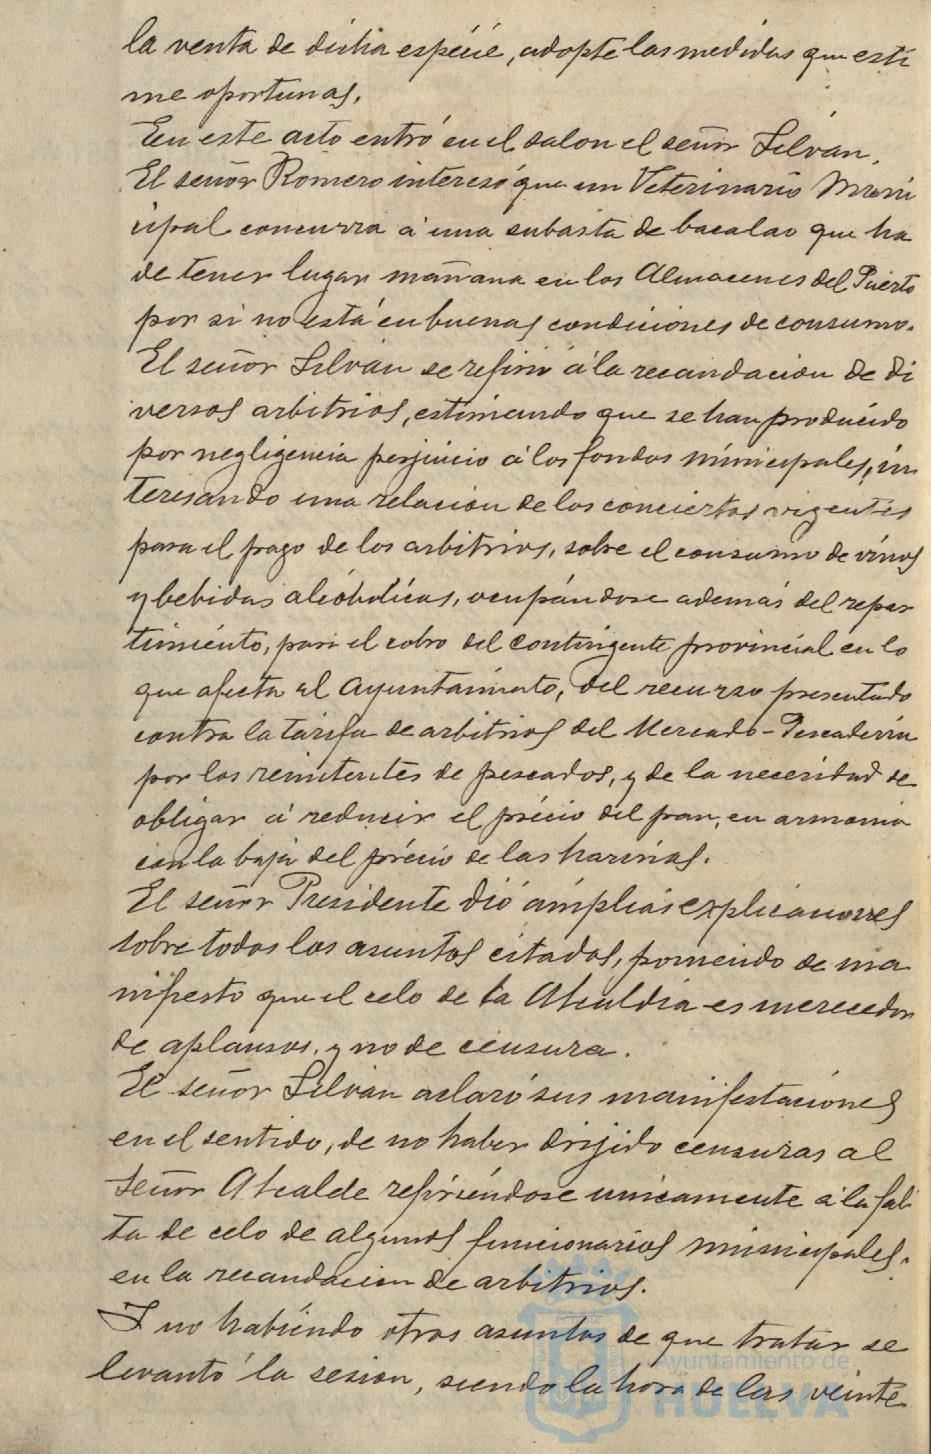 la venta de dicha espécie, adopte las medidas que esti
me oportunas.
En este acto entró en el salon el señor Silván.
El señor Romero interesó que un Veterinario Muni
cipal concurra á una subasta de bacalao que ha
de tener lugar mañana en los Almacenes del Puerto
por si no está en buenas condiciones de consumo.
El señor Silván se refirió á la recaudacion de di
versos arbitrios, estimando que se han producido
por negligencia perjuicio á los fondos municipales, in
teresando una relacion de los conciertos vigentes
para el pago de los arbitrios, sobre el consumo de vinos
y bebidas alcóholicas, ocupándose además del repar
timiento, para el cobro del contingente provincial en lo
que afecta al Ayuntamiento, del recurso presentado
contra la tarifa de arbitrios del Mercado-Pescadería
por los remitentes de pescados, y de la necesidad de
obligar á reducir el précio del pan, en armonia
con la baja del précio de las harinas.
El señor Presidente dió ámplias explicaciones
sobre todos los asuntos citados, poniendo de ma
nifiesto que el celo de la Alcaldia es merecedor
de aplausos, y no de censura.
El señor Silván aclaró sus manifestaciónes
en el sentido, de no haber dirijido censuras al
Señor Alcalde refiriéndose unicamente á la fal
ta de celo de algunos funcionarios municipales,
en la recaudacion de arbitrios.
Y no habiendo otros asuntos de que tratar se
levantó la sesion, siendo la hora de las veinte
Ayuntamiento de
HUELVA